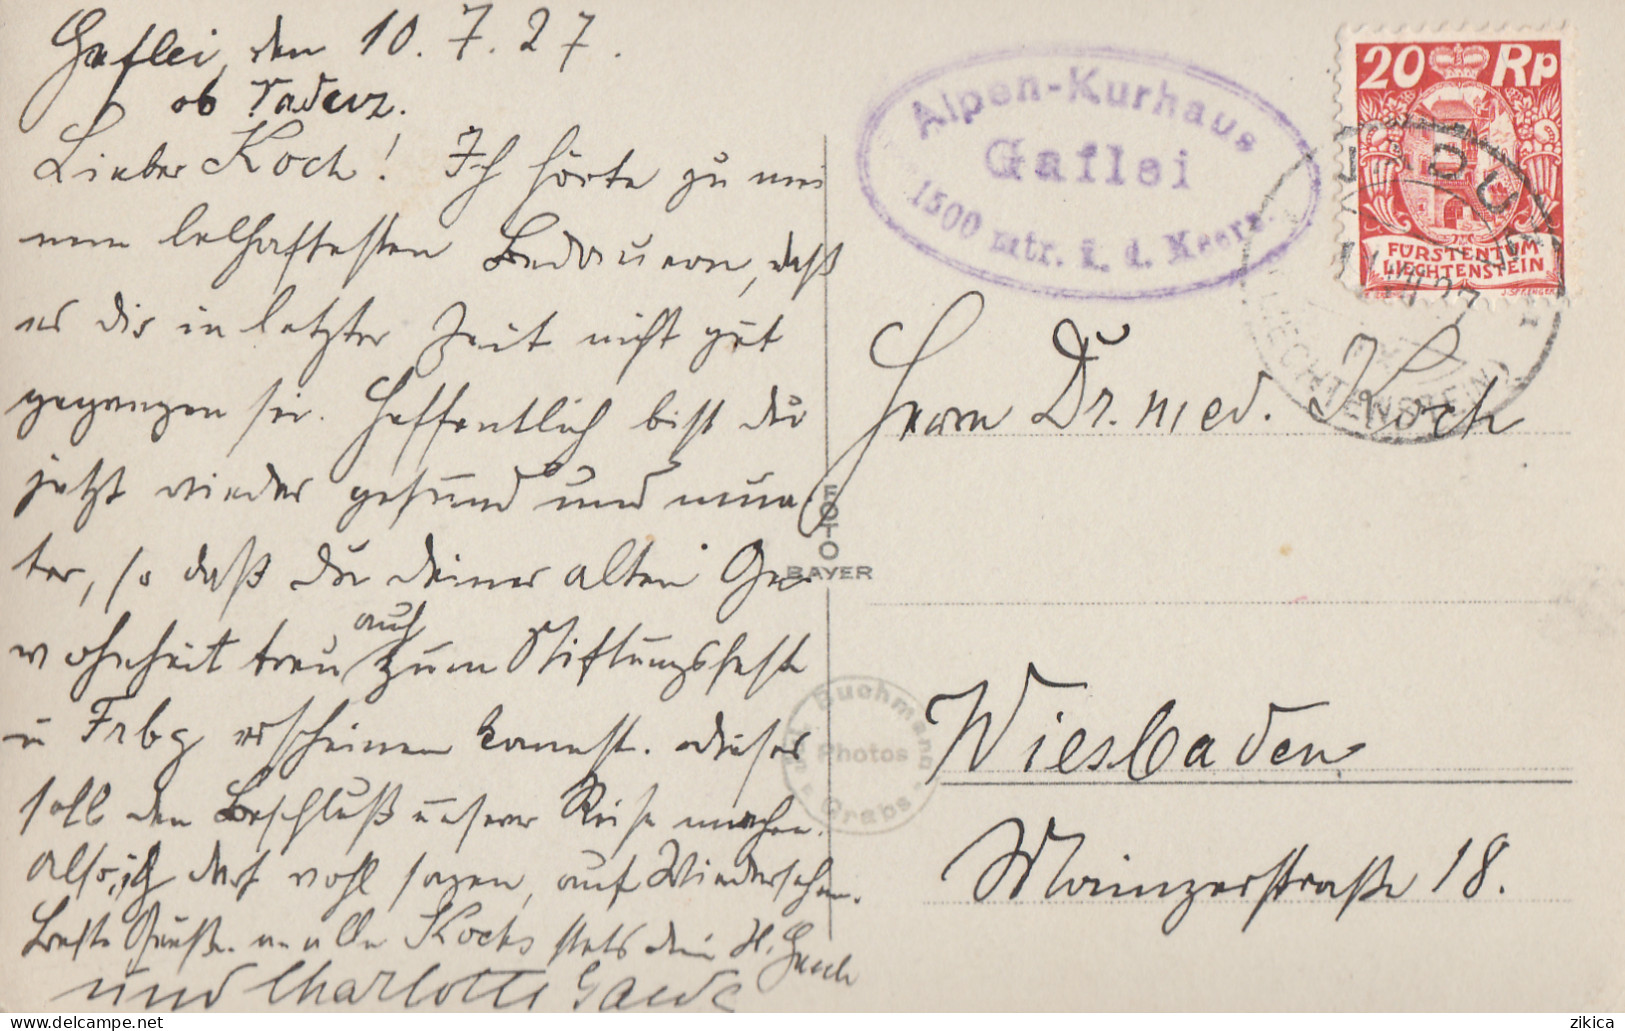 Gaflei, den 10. 7. 27.
ob Vaduz.
Lieber Koch! Ich hörte zu mei
nem lebhaftesten Bedauern, daß
es dir in letzter Zeit nicht gut
gegangen sei. Hoffentlich bist du
jetzt wieder gesund und mun-
ter, so daß du deiner alten Ge-
wohnheit treu auch zum Stiftungsfeste
in Frbg erscheinen kannst. Dieses
soll den Beschluß unserer Reise machen.
Also, ich darf wohl sagen, auf Wiedersehen.
Beste Grüße an alle Kochs stets dein H.
und Charlotte Gaede
Alpen-Kurhaus
Gaflei
1500 mtr. ü. d. Meere.
20 Rp
FÜRSTENTUM
LIECHTENSTEIN
VADUZ
(LIECHTENSTEIN)
Herrn Dr. med. Koch
Wiesbaden
Mainzerstraße 18.
FOTO
BAYER
Buchmann
Photos
Grabs
zikica